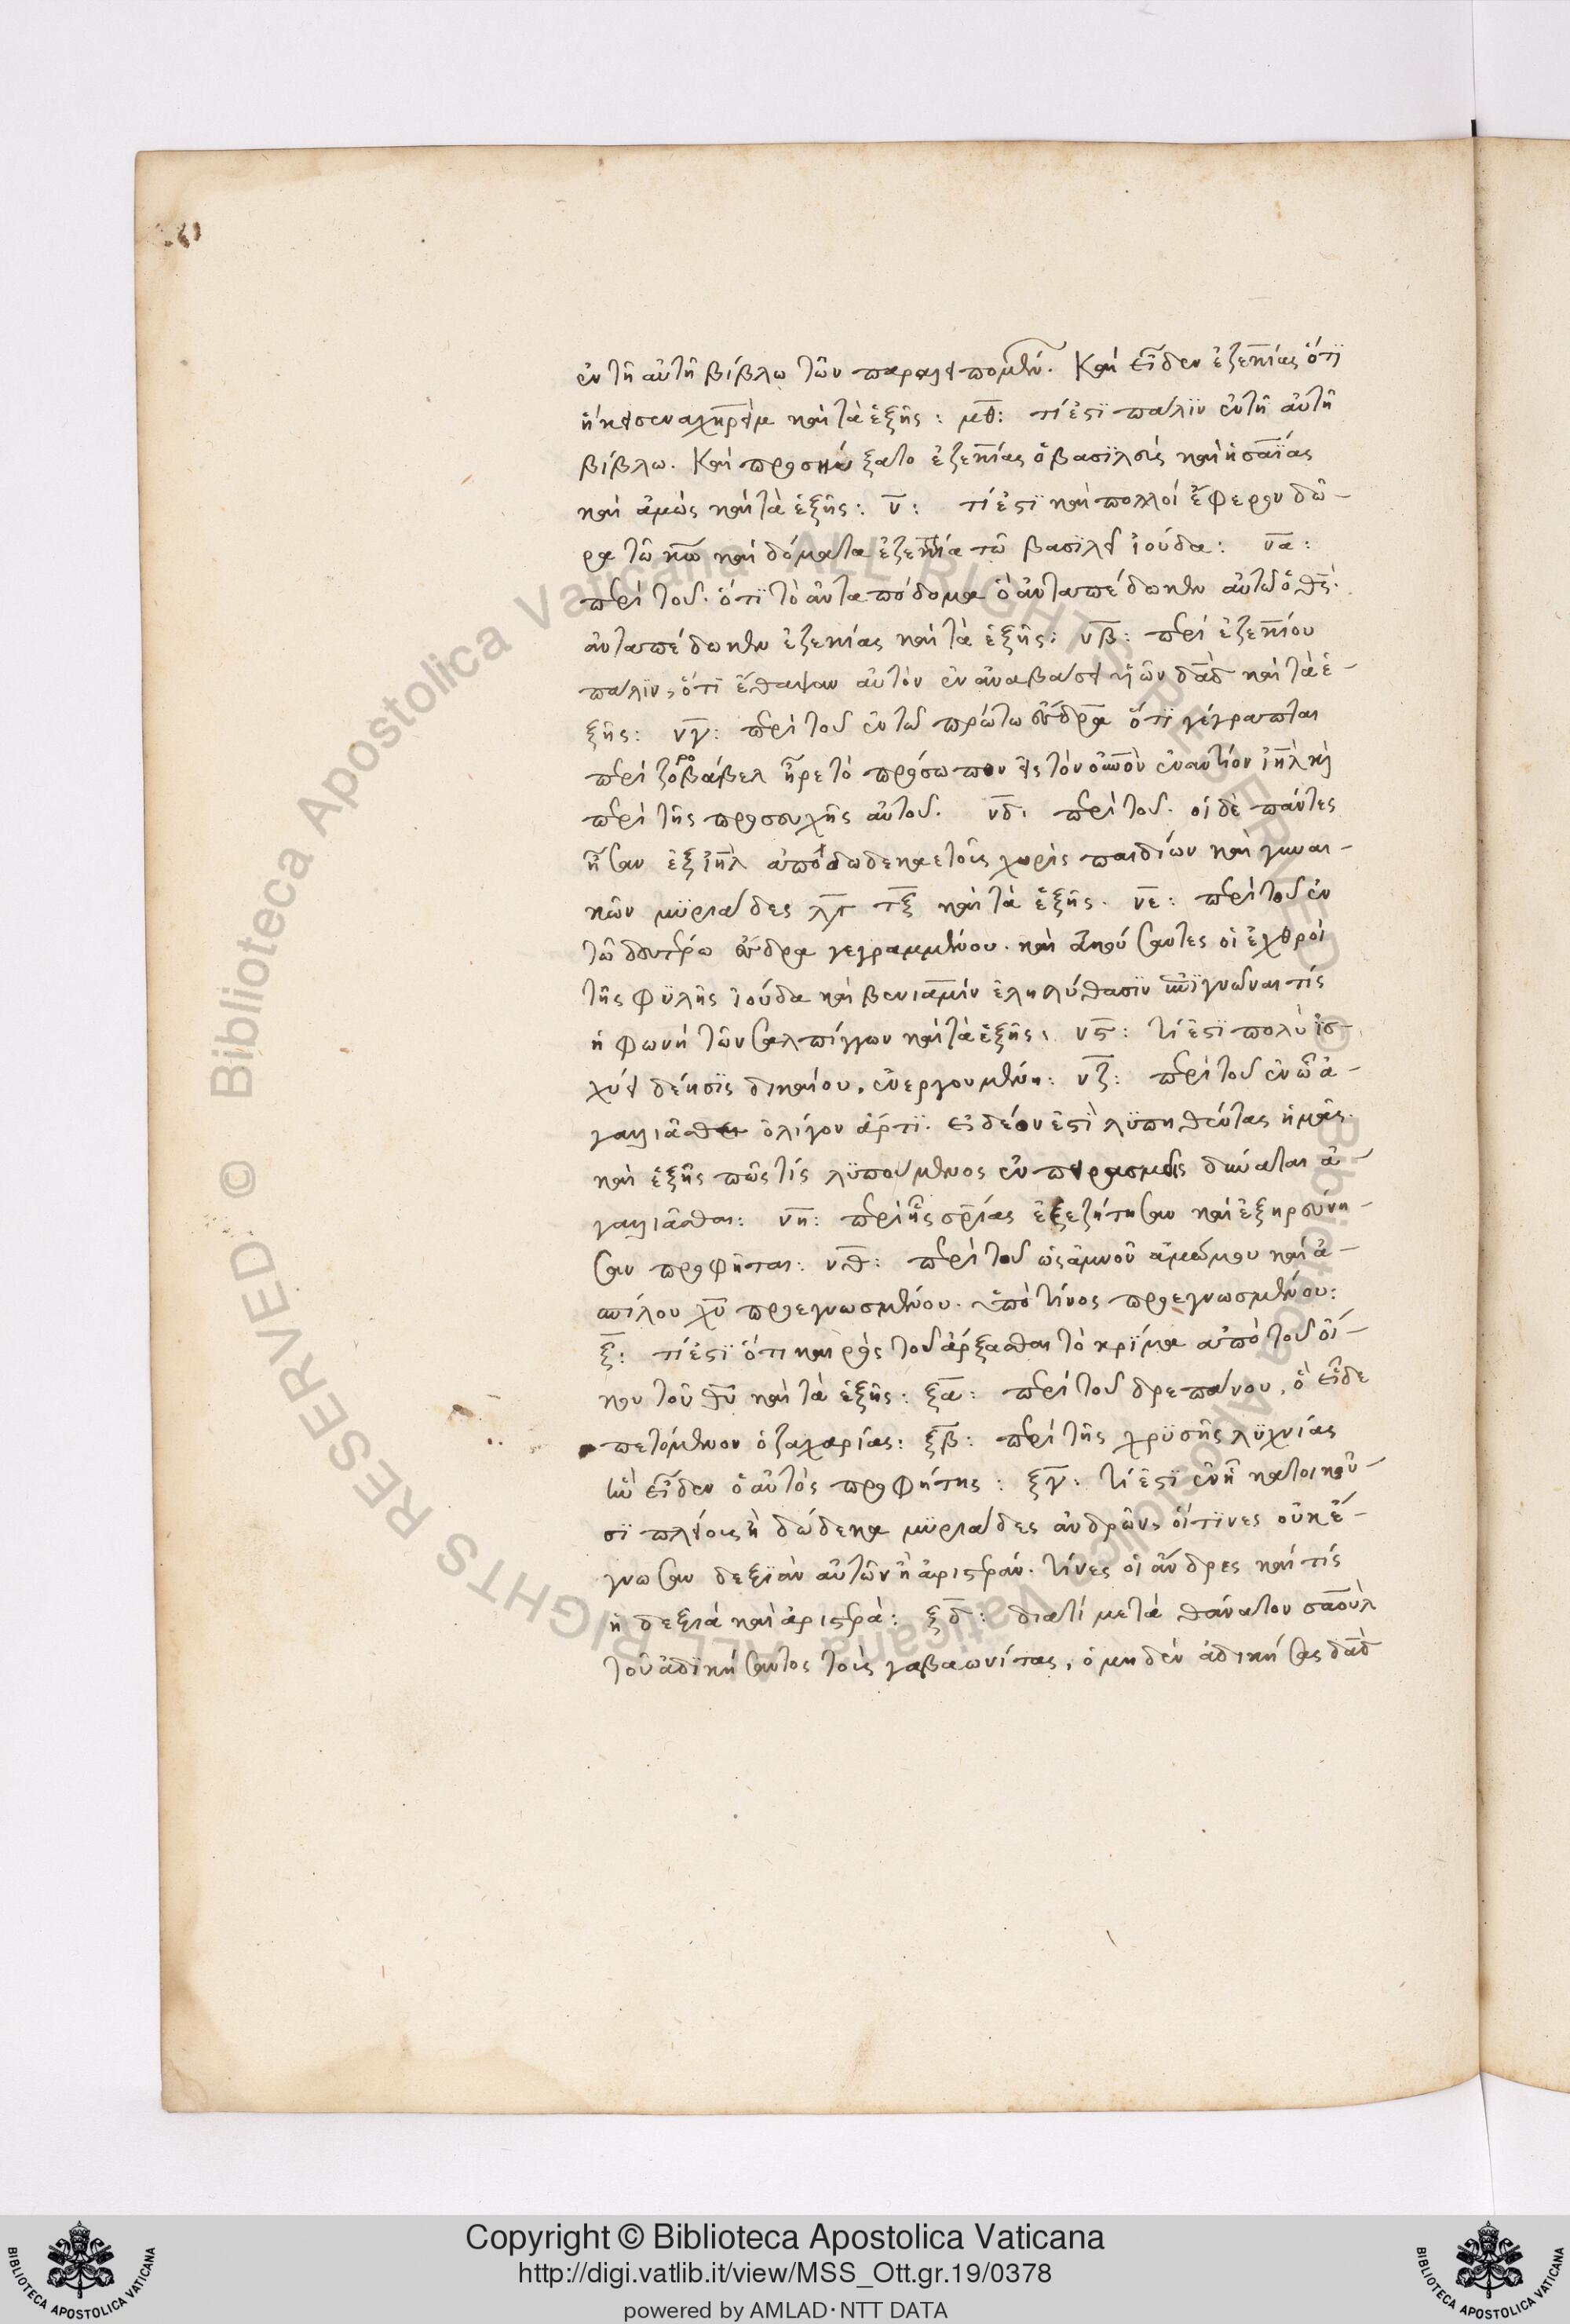 ἐν τῆ αὐτῆ βίβλω τῶν παραλειπομένων. Καὶ εἶδεν ἐζεκίας ὅτϊ
ἥκει σεναχηρεὶμ καὶ τὰ ἑξῆς: μθ: τί ἐστϊ παλϊν ἐν τῆ αὐτῆ
βίβλω. Καὶ προσηύξατο ἐζεκίας ὁ βασϊλεὺς καὶ ἡσαΐας
καὶ ἀμὼς καὶ τὰ ἑξῆς: ν: τί ἐστϊ καὶ πολλοί ἔφερον δῶ-
ρα τῶ κω καὶ δόματα ἐζεκία τῶ βασϊλεῖ ἰούδα: να:
περὶ τοῦ. ὅτϊ τὸ ἀνταπόδομα ὃ ἀνταπέδωκεν αὐτῶ ὁ θς.
ἀνταπέδωκεν ἐζεκίας καὶ τὰ ἑξῆς: νβ: περὶ ἐζεκίου
παλϊν, ὅτϊ ἔθαψαν αὐτὸν ἐν ἀναβασει υἱῶν δαδ καὶ τὰ ἑ-
ξῆς: νγ: περὶ τοῦ ἐν τῶ πρώτω ἔσδρα ὅτϊ γέγραπται
περὶ ζοροβάβελ ἦρε τὸ πρόσωπον εἰς τὸν οὐνον ἐναντίον ἰηλ καὶ
περὶ τῆς προσευχῆς αὐτοῦ. νδ: περὶ τοῦ. οἱ δὲ πάντες
ἦσαν ἐξ ἰηλ ἀπὸ δωδεκαετοῦς χωρὶς παιδίων καὶ γυναι-
κῶν μϋριαδες τξ καὶ τὰ ἑξῆς. νε: περὶ τοῦ ἐν
τῶ δευτέρω ἔσδρα γεγραμμένου. καὶ ἀκούσαντες οἱ ἐχθροὶ
τῆς φϋλῆς ἰούδα καὶ βενιαμὶν ἐληλύθασϊν ἐπιγνῶναι τίς
ἡ φωνὴ τῶν σαλπίγγων καὶ τὰ ἑξῆς: νς: τί ἐστϊ πολὺ ἰσ-
χύει δέησϊς δικαίου, ἐνεργουμένη: νζ: περὶ τοῦ ἐν ὧ ἀ-
γαλλιᾶσθαι ὀλίγον ἄρτϊ. εἰ δέον ἐστὶ λϋπηθέντας ἡμᾶς.
καὶ ἑξῆς πῶς τίς λϋπούμενος ἐν πειρασμοῖς δύναται ἀ-
γαλλιᾶσθαι: νη: περὶ ἧς σρίας ἐξεζήτησαν καὶ ἐξηρεύνη-
σαν προφῆται: νθ: περὶ τοῦ ὡς ἀμνοῦ ἀμώμου καὶ ἀ-
σπίλου χυ προεγνωσμένου. ὑπὸ τίνος προεγνωσμένου:
ξ: τί ἐστϊ ὅτι καιρὸς τοῦ ἄρξασθαι τὸ κρϊμα ἀπὸ τοῦ οἴ-
κου τοῦ θυ καὶ τὰ ἑξῆς: ξα: περὶ τοῦ δρεπάνου, ὃ εἶδε
πετόμενον ὁ ζαχαρίας: ξβ: περὶ τῆς χρϋσῆς λϋχνίας
ἣν εἶδεν ὁ αὐτὸς προφήτης: ξγ: τί ἐστϊ ἐν ἧ κατοικοῦ-
σϊ πλείους ἢ δώδεκα μϋριαδες ἀνδρῶν, οἵτϊνες οὐκ ἔ-
γνωσαν δεξϊὰν αὐτῶν ἢ ἀριστεράν. τίνες οἱ ἄνδρες καὶ τίς
ἡ δεξιά καὶ ἀριστερὰ: ξδ: διατί μετὰ θάνατον σαοὺλ
τοῦ ἀδϊκήσαντος τοὺς γαβαωνίτας, ὁ μηδὲν ἀδικήσας δαδ
© Biblioteca Apostolica Vaticana ALL RIGHTS RESERVED
© Biblioteca Apostolica Vaticana ALL RIGHTS RESERVED
Copyright © Biblioteca Apostolica Vaticana
http://digi.vatlib.it/view/MSS_Ott.gr.19/0378
powered by AMLAD·NTT DATA
BIBLIOTECA APOSTOLICA VATICANA
BIBLIOTECA APOSTOLICA VATICANA